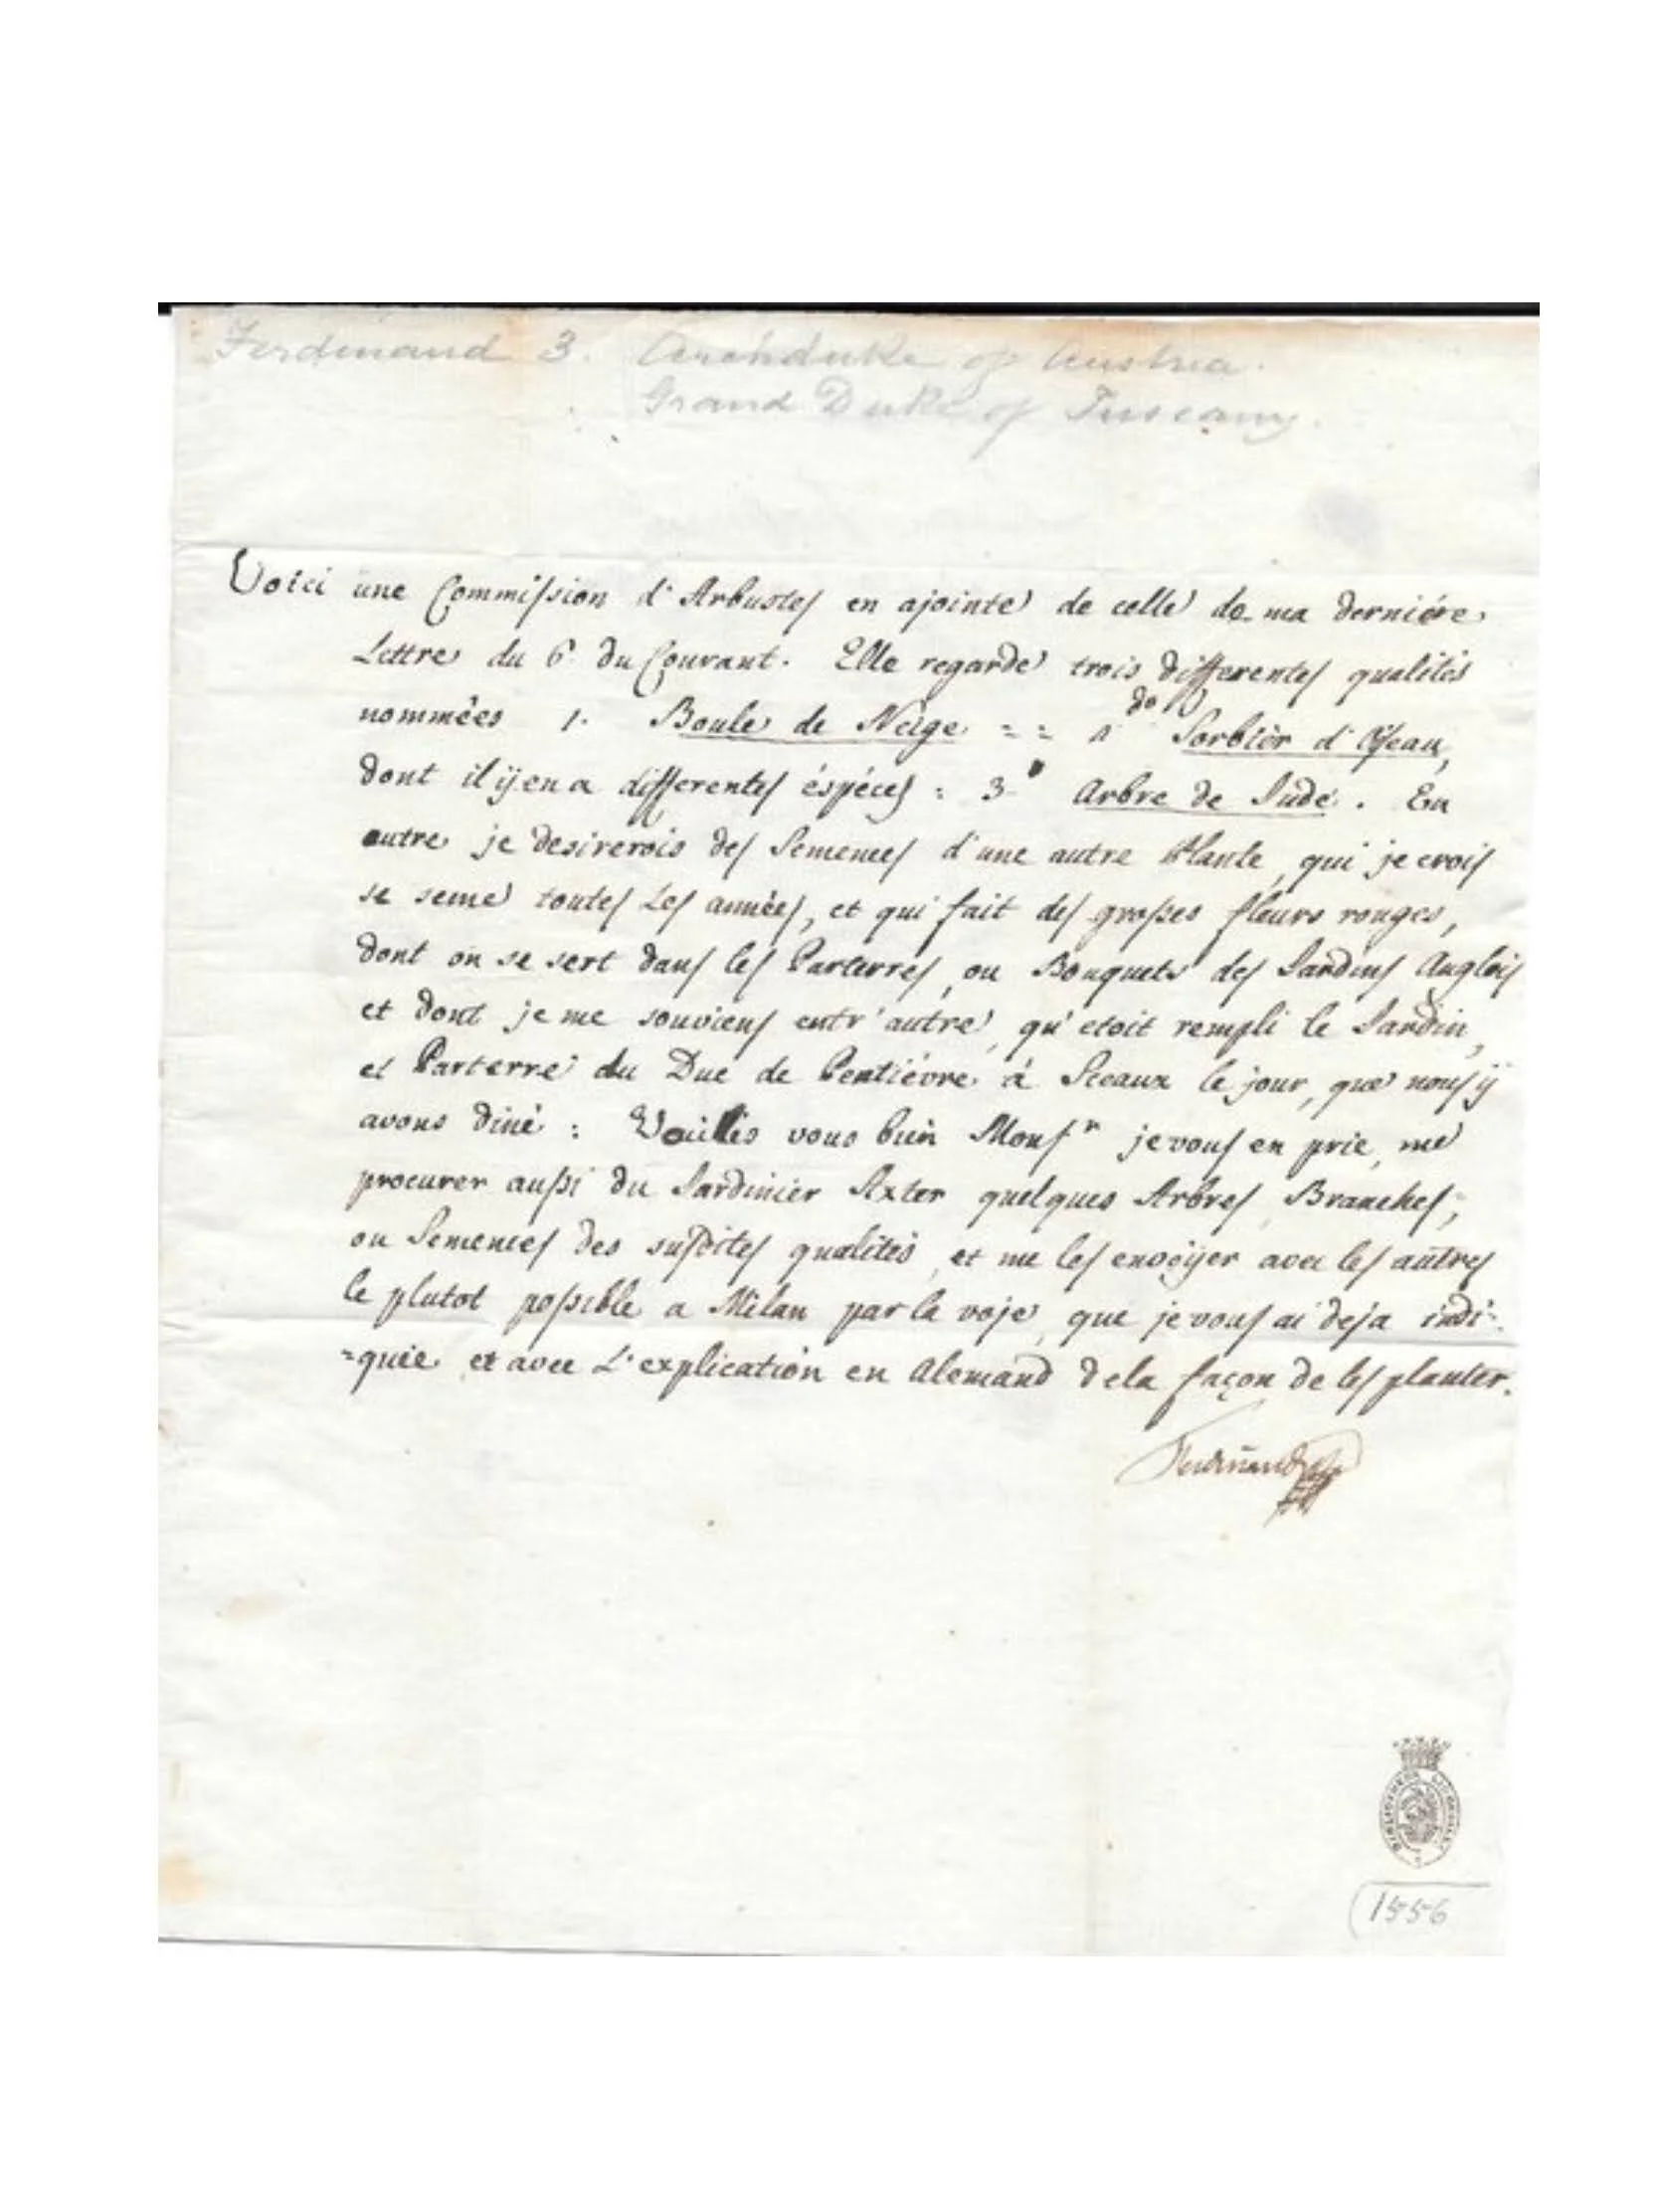 Ferdinand 3. Archduke of Austria.
Grand Duke of Tuscany.
Voici une Commission d'Arbustes en ajointe de celle de ma derniére
Lettre du 6 du Courant. Elle regarde trois differentes qualités
nommées 1. Boule de Neige = =
do
Sorbièr d'Oiseau,
dont il ÿ en a differentes éspéces : 3° Arbre de Jude. En
outre je desirerois des Semences d'une autre Plante, qui je crois
se seme toutes Les années, et qui fait des grosses fleurs rouges,
dont on se sert dans les Parterres, ou Bouquets des Jardins Anglois
et dont je me souviens entr'autre, qu'etoit rempli le Jardin,
et Parterre du Duc de Pentiévre á Sceaux le jour, que nous ÿ
avons diné : Veuillés vous bien Monsr je vous en prie, me
procurer aussi du Jardinier Axter quelques Arbres, Branches,
ou Semences des susdites qualités, et me les envoÿer avec les autres
le plutot possible a Milan par la voje, que je vous ai deja indi=
=quée et avec L'explication en Alemand de la façon de les planter.
Ferdinand
1556